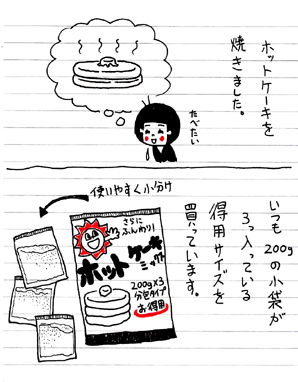 ホットケーキを
焼きました。
たべたい
いつも200gの小袋が
3つ入っている
得用サイズを
買っています。
使いやすく小分け
さらに
ふんわり
ホットケーキ
ミックス
200g×3
分包タイプ
お得用